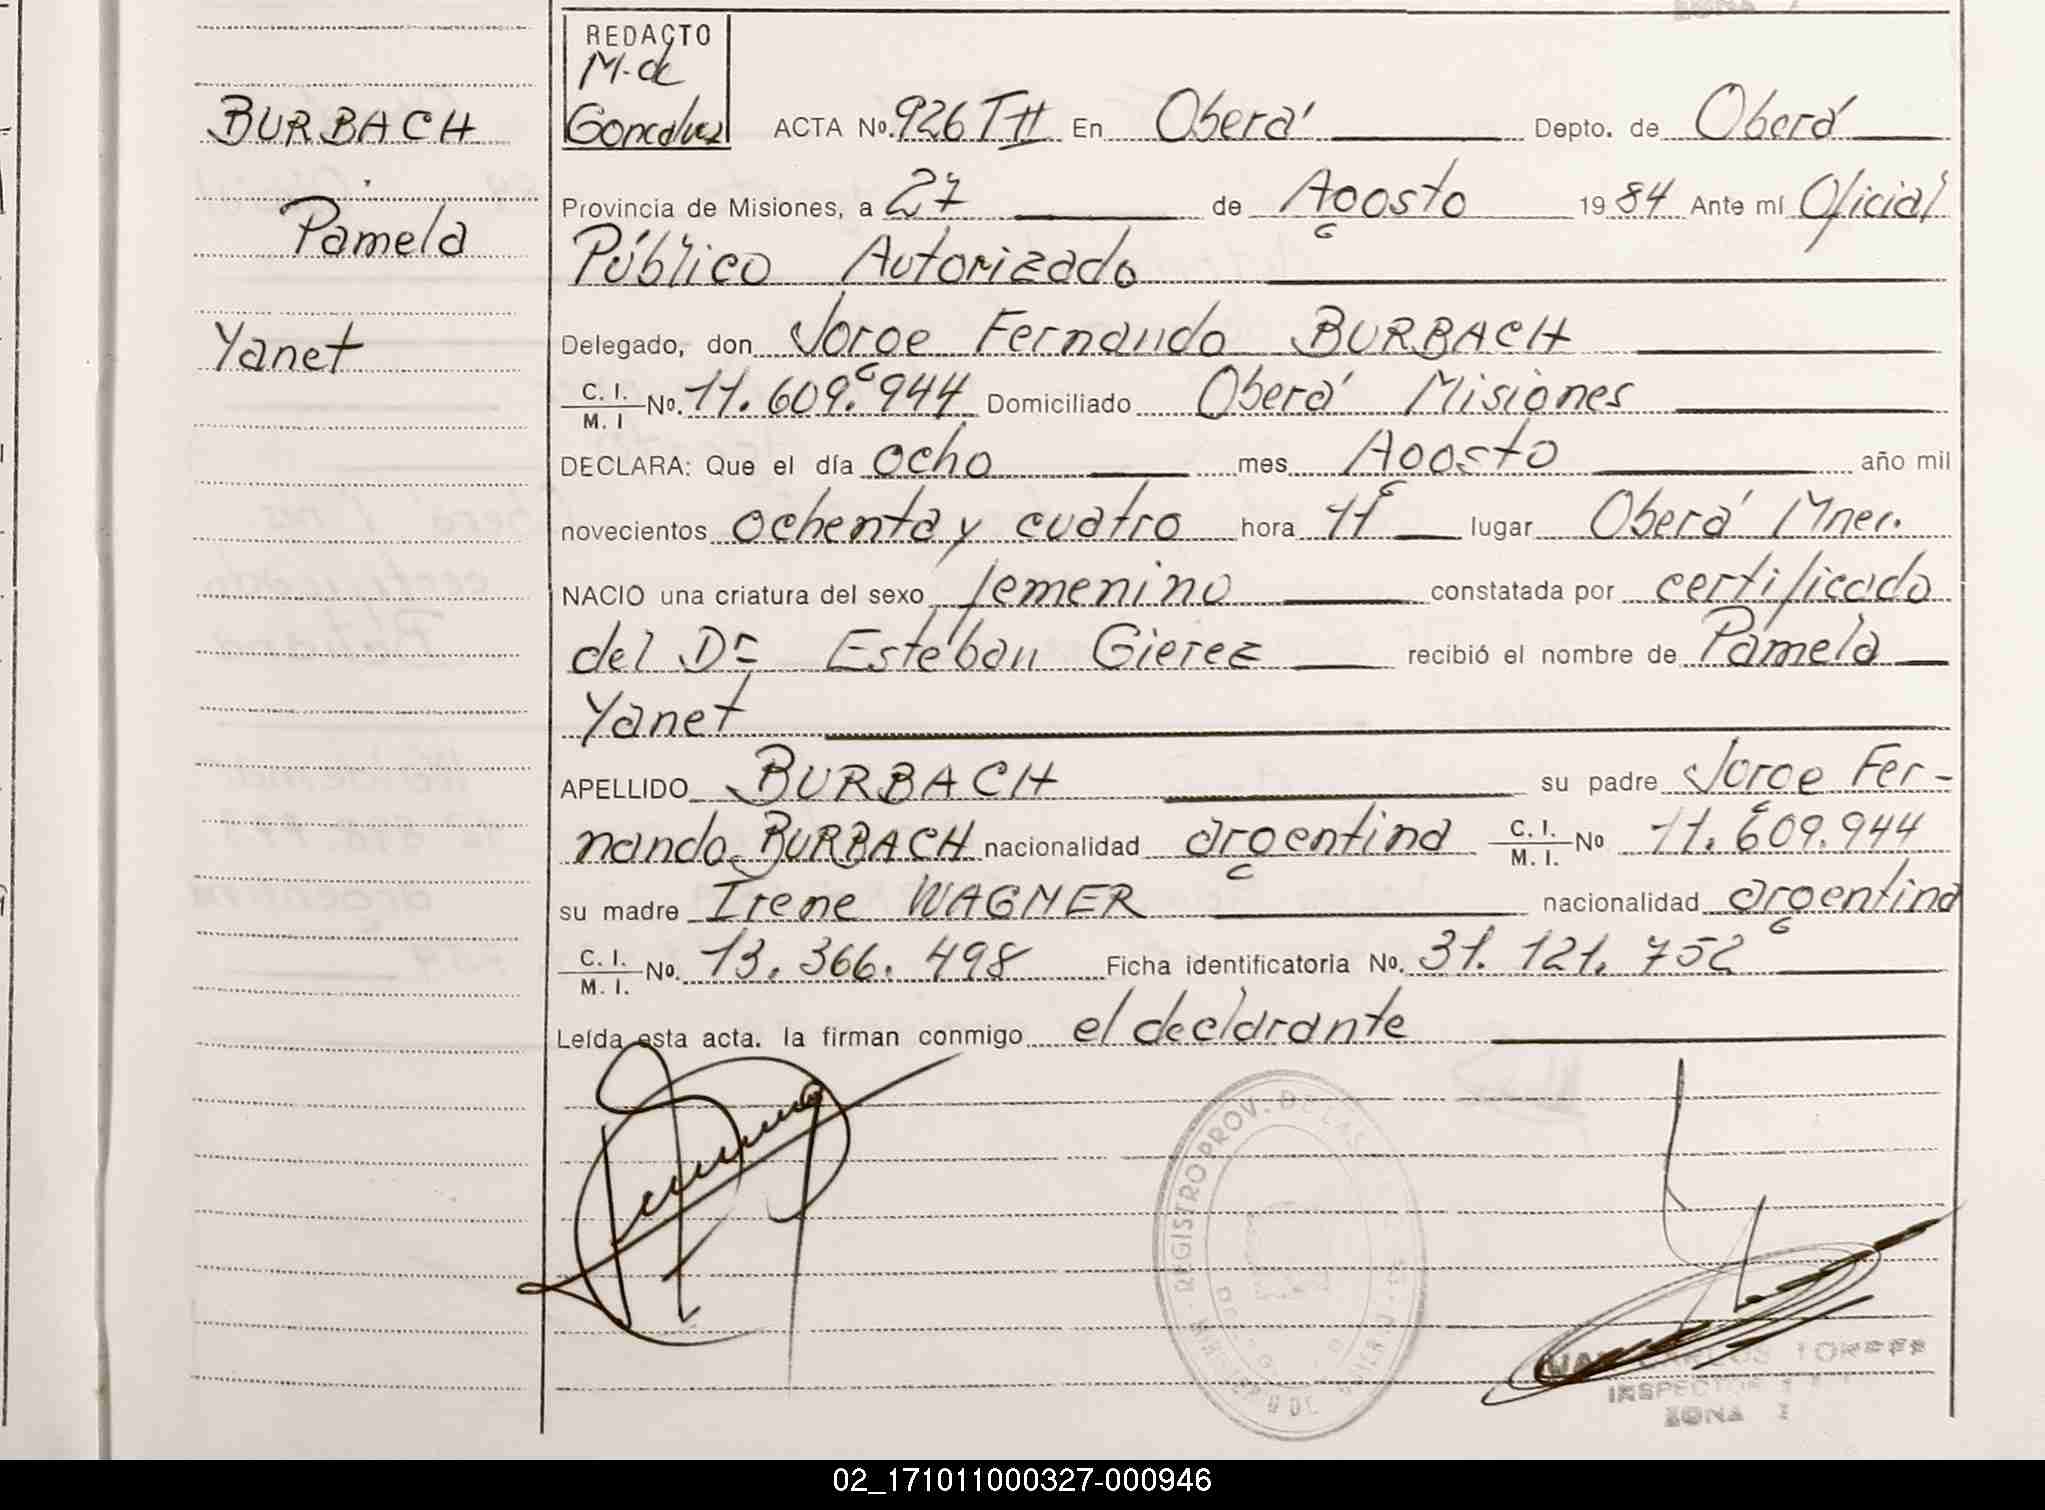 BURBACH
Pamela
Yanet
REDACTO
M. de
Goncalvez
ACTA No. 926 TII En Oberá Depto. de Oberá
Provincia de Misiones, a 27 de Agosto 1984 Ante mí Oficial
Público Autorizado
Delegado, don Jorge Fernando BURBACH
C. I. M. I No. 11.609.944 Domiciliado Oberá Misiones
DECLARA: Que el día ocho mes Agosto año mil
novecientos ochenta y cuatro hora 11 lugar Oberá Mnes.
NACIO una criatura del sexo femenino constatada por certificado
del Dr Esteban Gierez recibió el nombre de Pamela
Yanet
APELLIDO BURBACH su padre Jorge Fer-
nando BURBACH nacionalidad argentina C. I. M. I. No 11.609.944
su madre Irene WAGNER nacionalidad argentina
C. I. M. I. No. 13.366.498 Ficha identificatoria No. 31.121.752
Leída esta acta. la firman conmigo el declarante
REGISTRO PROV. DE LAS
CARLOS TORRES
INSPECTOR
ZONA I
02_171011000327-000946